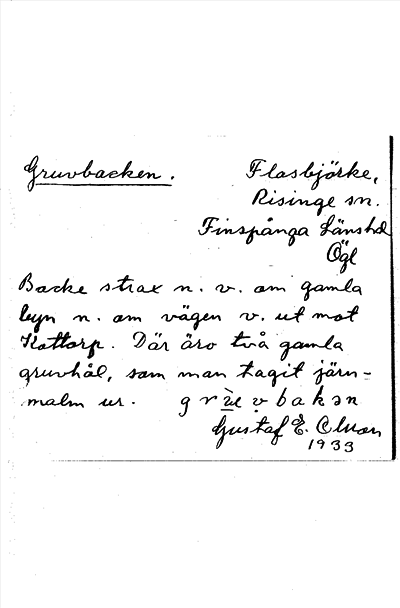 Gruvbacken. Flasbjörke,
Risinge sn.
Finspånga Länshd
Ögl
Backe strax n. v. om gamla
byn n. om vägen v. ut mot
Kattorp. Där äro två gamla
gruvhål, som man tagit järn-
malm ur. grùvbakən
Gustaf E.
1933